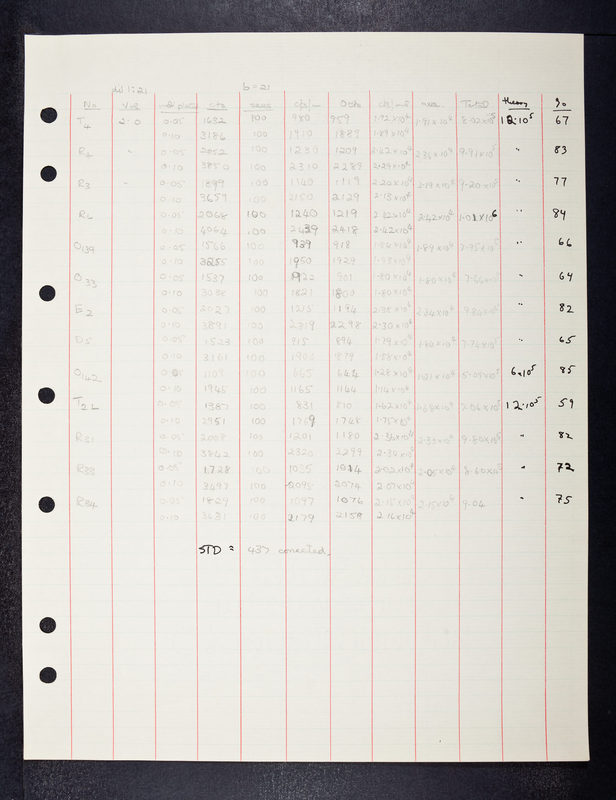 dil 1:21 b = 21
No. Vol cts secs cts/m Total theory %
T4 2.0 0.05 1632 100 980 959 1.92×10⁴ 1.91×10⁴ 12.10⁵ 67
0.10 3186 100 1910 1889 1.89×10⁴
R2 " 0.05 2052 100 1230 1209 2.42×10⁴ 9.91×10⁵ " 83
0.10 3850 100 2310 2289 2.29×10⁴
R3 " 0.05 1899 100 1140 1119 2.24×10⁴ 2.19×10⁴ 9.20×10⁵ " 77
0.10 3657 100 2150 2129 2.13×10⁴
0.05 2068 100 1240 1219 2.42×10⁴ 1.01×10⁶ " 84
0.10 4064 100 2439 2418 2.42×10⁴
O139 0.05 1566 100 939 918 1.84×10⁴ 1.89×10⁴ " 66
0.10 3255 100 1950 1929 1.93×10⁴
O33 0.05 1537 100 922 901 1.80×10⁴ 1.80×10⁴ " 64
0.10 100 1821 1800 1.80×10⁴
E2 0.05 2027 100 1215 1194 " 82
0.10 3891 100 2319 2298 2.30×10⁴
D5 0.05 1523 100 915 894 1.79×10⁴ " 65
0.10 3161 100 1900 1879 1.88×10⁴
O142 0.05 1109 100 665 644 1.28×10⁴ 6×10⁵ 85
0.10 1945 100 1165 1144 1.14×10⁴
T2L 0.05 1387 100 831 810 1.62×10⁴ 12.10⁵ 59
0.10 2951 100 1769 1748 1.75×10⁴
R31 0.05 2008 100 1201 1180 2.36×10⁴ 9.80×10⁵ " 82
0.10 3842 100 2320 2299 2.30×10⁴
R38 0.05 1728 100 1035 1014 2.02×10⁴ 2.05×10⁴ 8.60×10⁵ " 72
0.10 3497 100 2095 2074 2.07×10⁴
R84 0.05 1829 100 1097 1076 2.15×10⁴ 2.15×10⁴ 9.04 " 75
0.10 3631 100 2179 2158 2.16×10⁴
STD = 437 corrected.